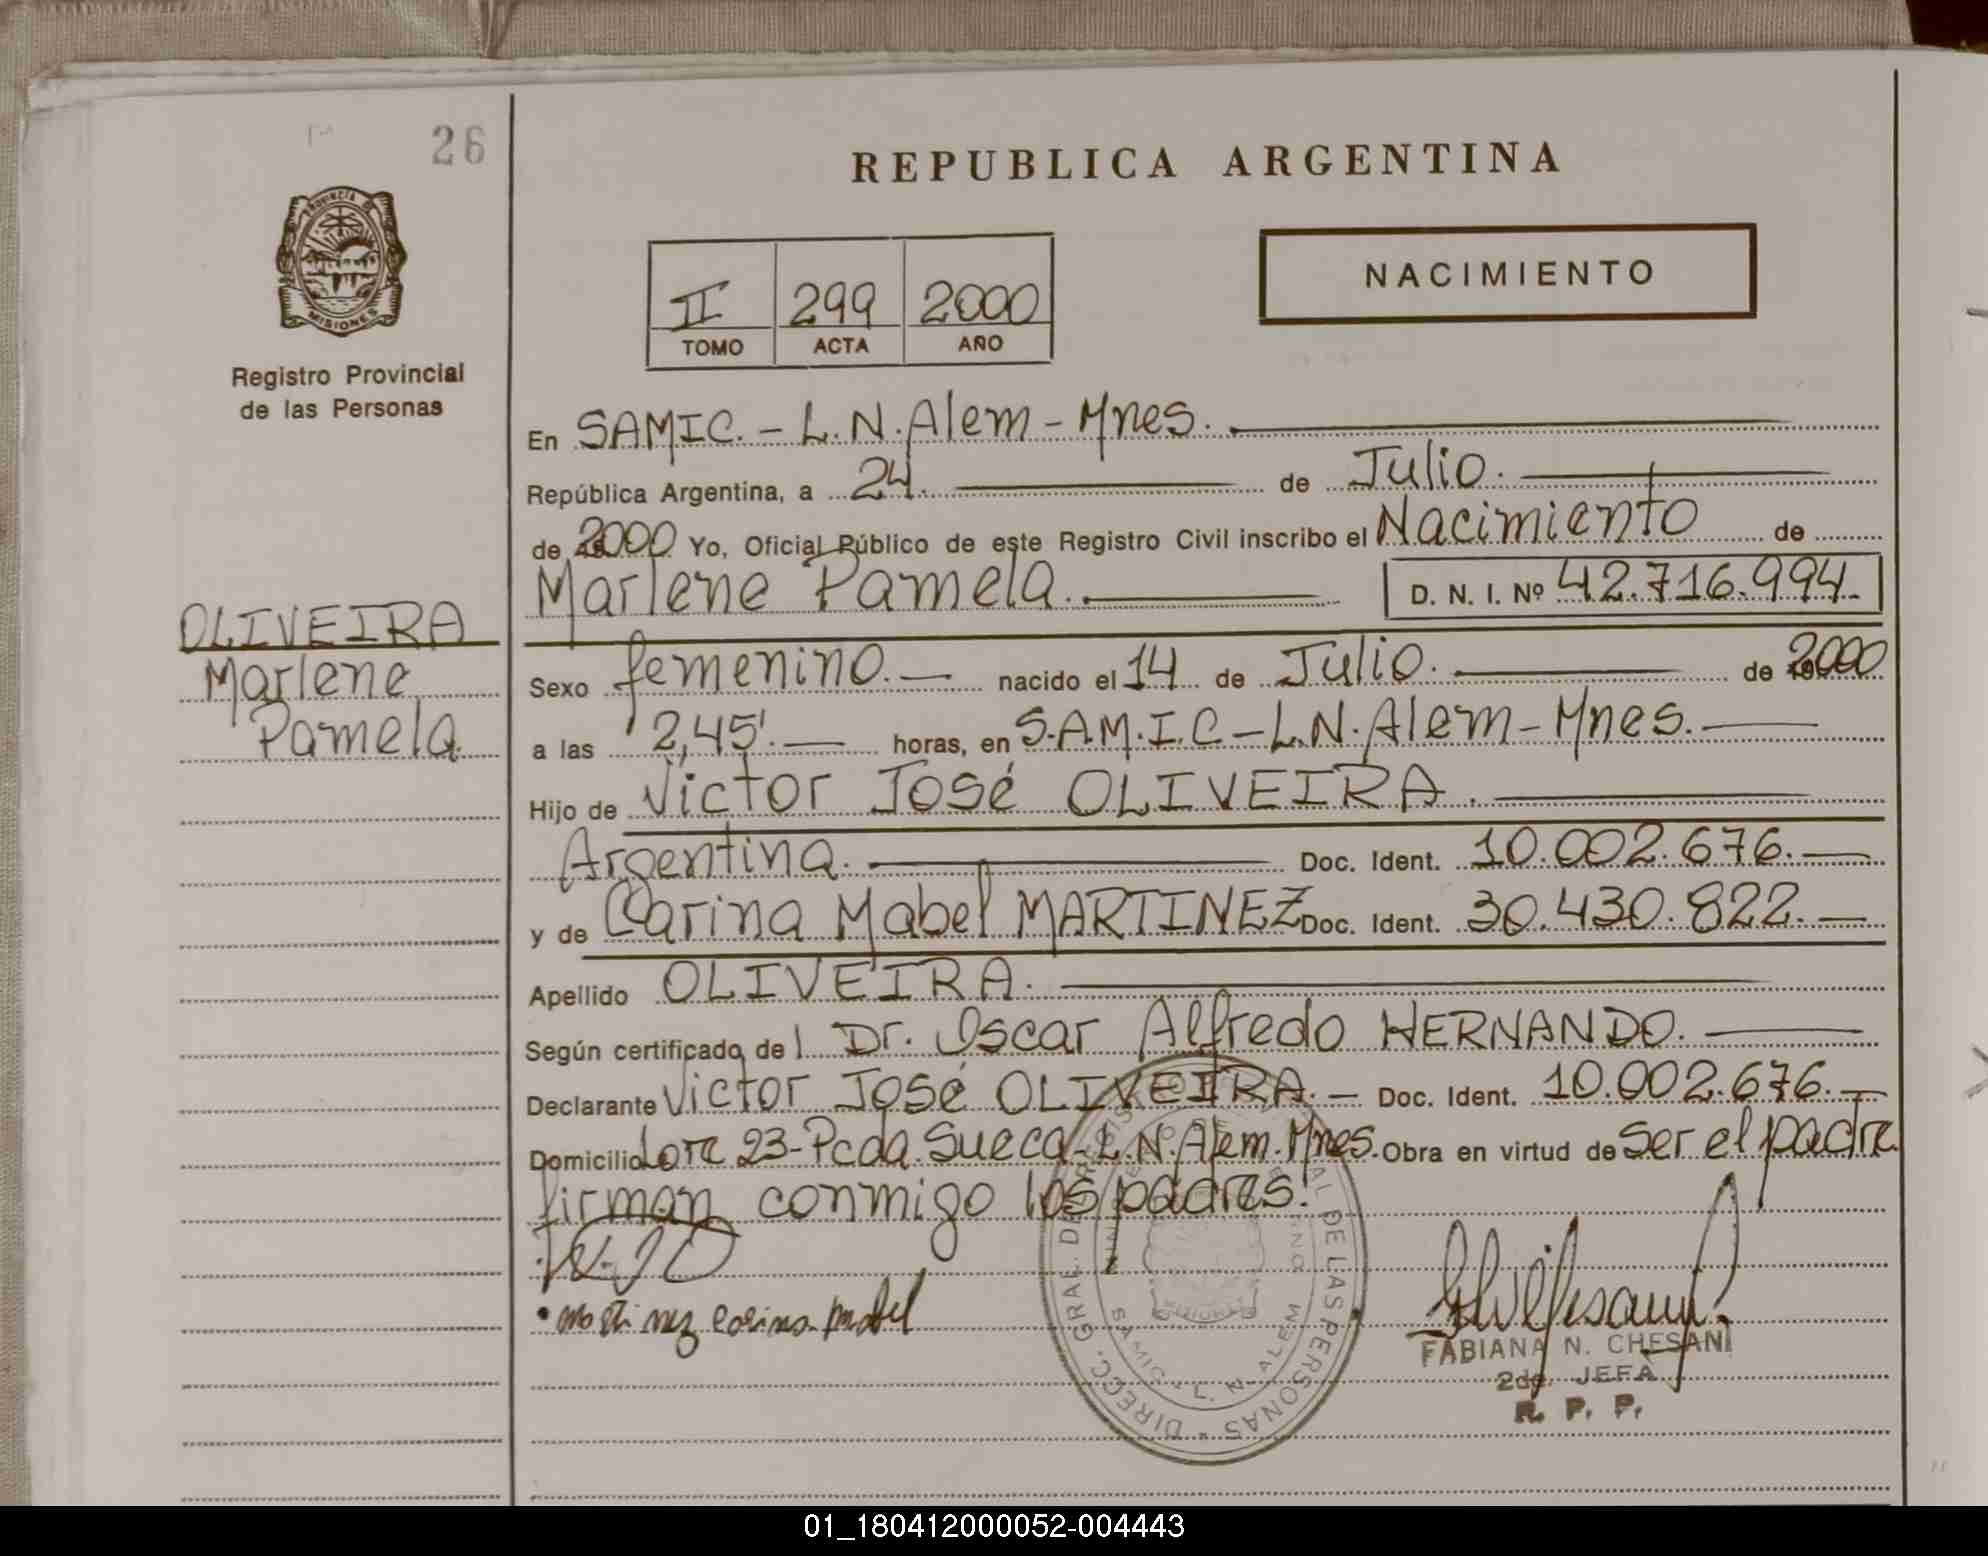 26
REPUBLICA ARGENTINA
PROVINCIA DE
MISIONES
Registro Provincial
de las Personas
II 299 2000
TOMO ACTA AÑO
NACIMIENTO
En SAMIC.- L.N.Alem - Mnes.
República Argentina, a 24. de Julio.
de 2000 Yo, Oficial Público de este Registro Civil inscribo el Nacimiento de
Marlene Pamela. D. N. I. Nº 42.716.994.-
OLIVEIRA
Marlene
Pamela.
Sexo femenino.- nacido el 14 de Julio. de 2000
a las 2,45'.- horas, en S.A.M.I.C - L.N. Alem - Mnes.-
Hijo de Victor José OLIVEIRA.
Argentina. Doc. Ident. 10.002.676.-
y de Carina Mabel MARTINEZ Doc. Ident. 30.430.822.-
Apellido OLIVEIRA.
Según certificado del Dr. Oscar Alfredo HERNANDO.
Declarante Victor José OLIVEIRA.- Doc. Ident. 10.002.676.-
Domicilio Lote 23-Pcda.Sueca-L.N.Alem.Mnes. Obra en virtud de ser el padre
firman conmigo los padres.
martinez carina mabel
DIRECC. GRAL. DEL REGISTRO PROVINCIAL DE LAS PERSONAS
SAMIC - L. N. ALEM
MISIONES
FABIANA N. CHESANI
2da. JEFA
R. P. P.
01_180412000052-004443